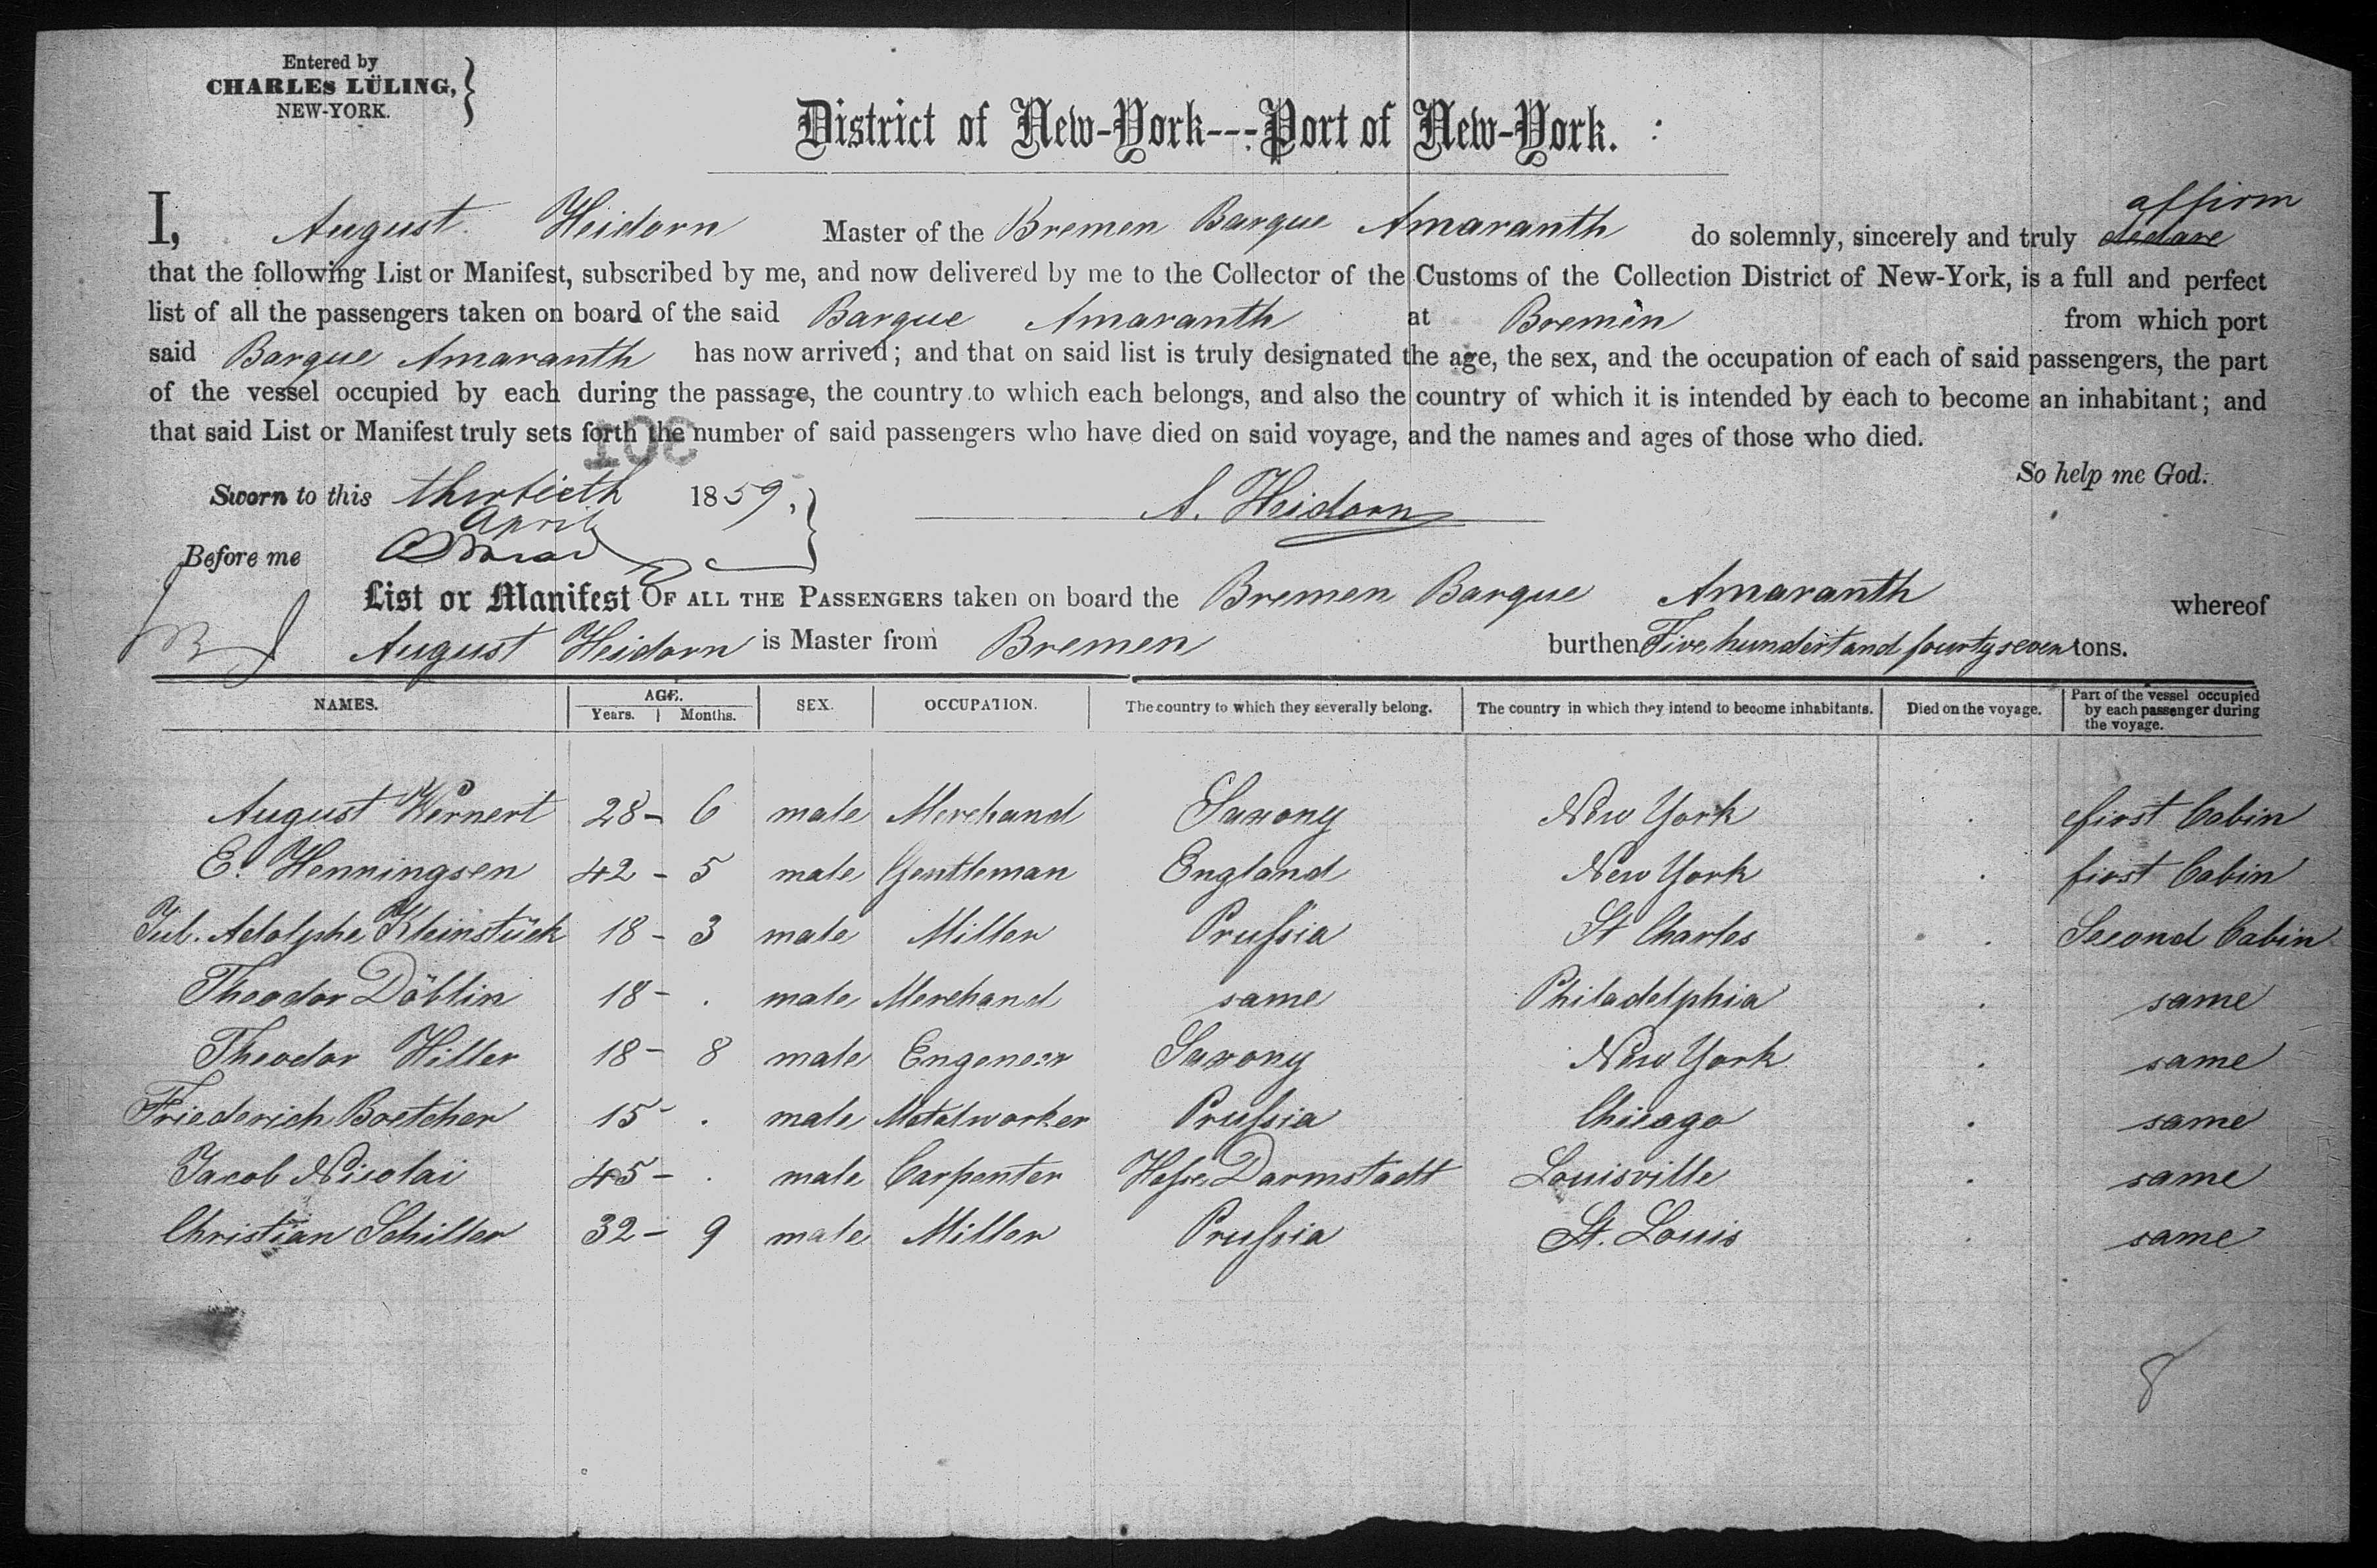 Entered by
CHARLES LÜLING,
NEW-YORK.
District of New-York---Port of New-York.
affirm
I, August Heidorn Master of the Bremen Barque Amaranth do solemnly, sincerely and truly declare
that the following List or Manifest, subscribed by me, and now delivered by me to the Collector of the Customs of the Collection District of New-York, is a full and perfect
list of all the passengers taken on board of the said Barque Amaranth at Bremen from which port
said Barque Amaranth has now arrived; and that on said list is truly designated the age, the sex, and the occupation of each of said passengers, the part
of the vessel occupied by each during the passage, the country to which each belongs, and also the country of which it is intended by each to become an inhabitant; and
that said List or Manifest truly sets forth the number of said passengers who have died on said voyage, and the names and ages of those who died.
So help me God.
Sworn to this thirtieth 1859,
April
A. Heidorn
Before me
List or Manifest OF ALL THE PASSENGERS taken on board the Bremen Barque Amaranth whereof
August Heidorn is Master from Bremen burthen Five hundert and fourty seven tons.
NAMES. AGE. Years. Months. SEX. OCCUPATION. The country to which they severally belong. The country in which they intend to become inhabitants. Died on the voyage. Part of the vessel occupied by each passenger during the voyage.
August Wernert 28 - 6 male Merchand Saxony New York . first Cabin
E. Henningsen 42 - 5 male Gentleman England New York . first Cabin
Jul. Adolphe Kleinstück 18 - 3 male Miller Prussia St Charles . Second Cabin
Theodor Döblin 18 - . male Merchand same Philadelphia . same
Theodor Hiller 18 - 8 male Engeneer Saxony New York . same
Friederich Boetcher 15 - . male Metalworker Prussia Chicago . same
Jacob Nicolai 45 - . male Carpenter Hesse Darmstadt Louisville . same
Christian Schiller 32 - 9 male Miller Prussia St. Louis . same
8